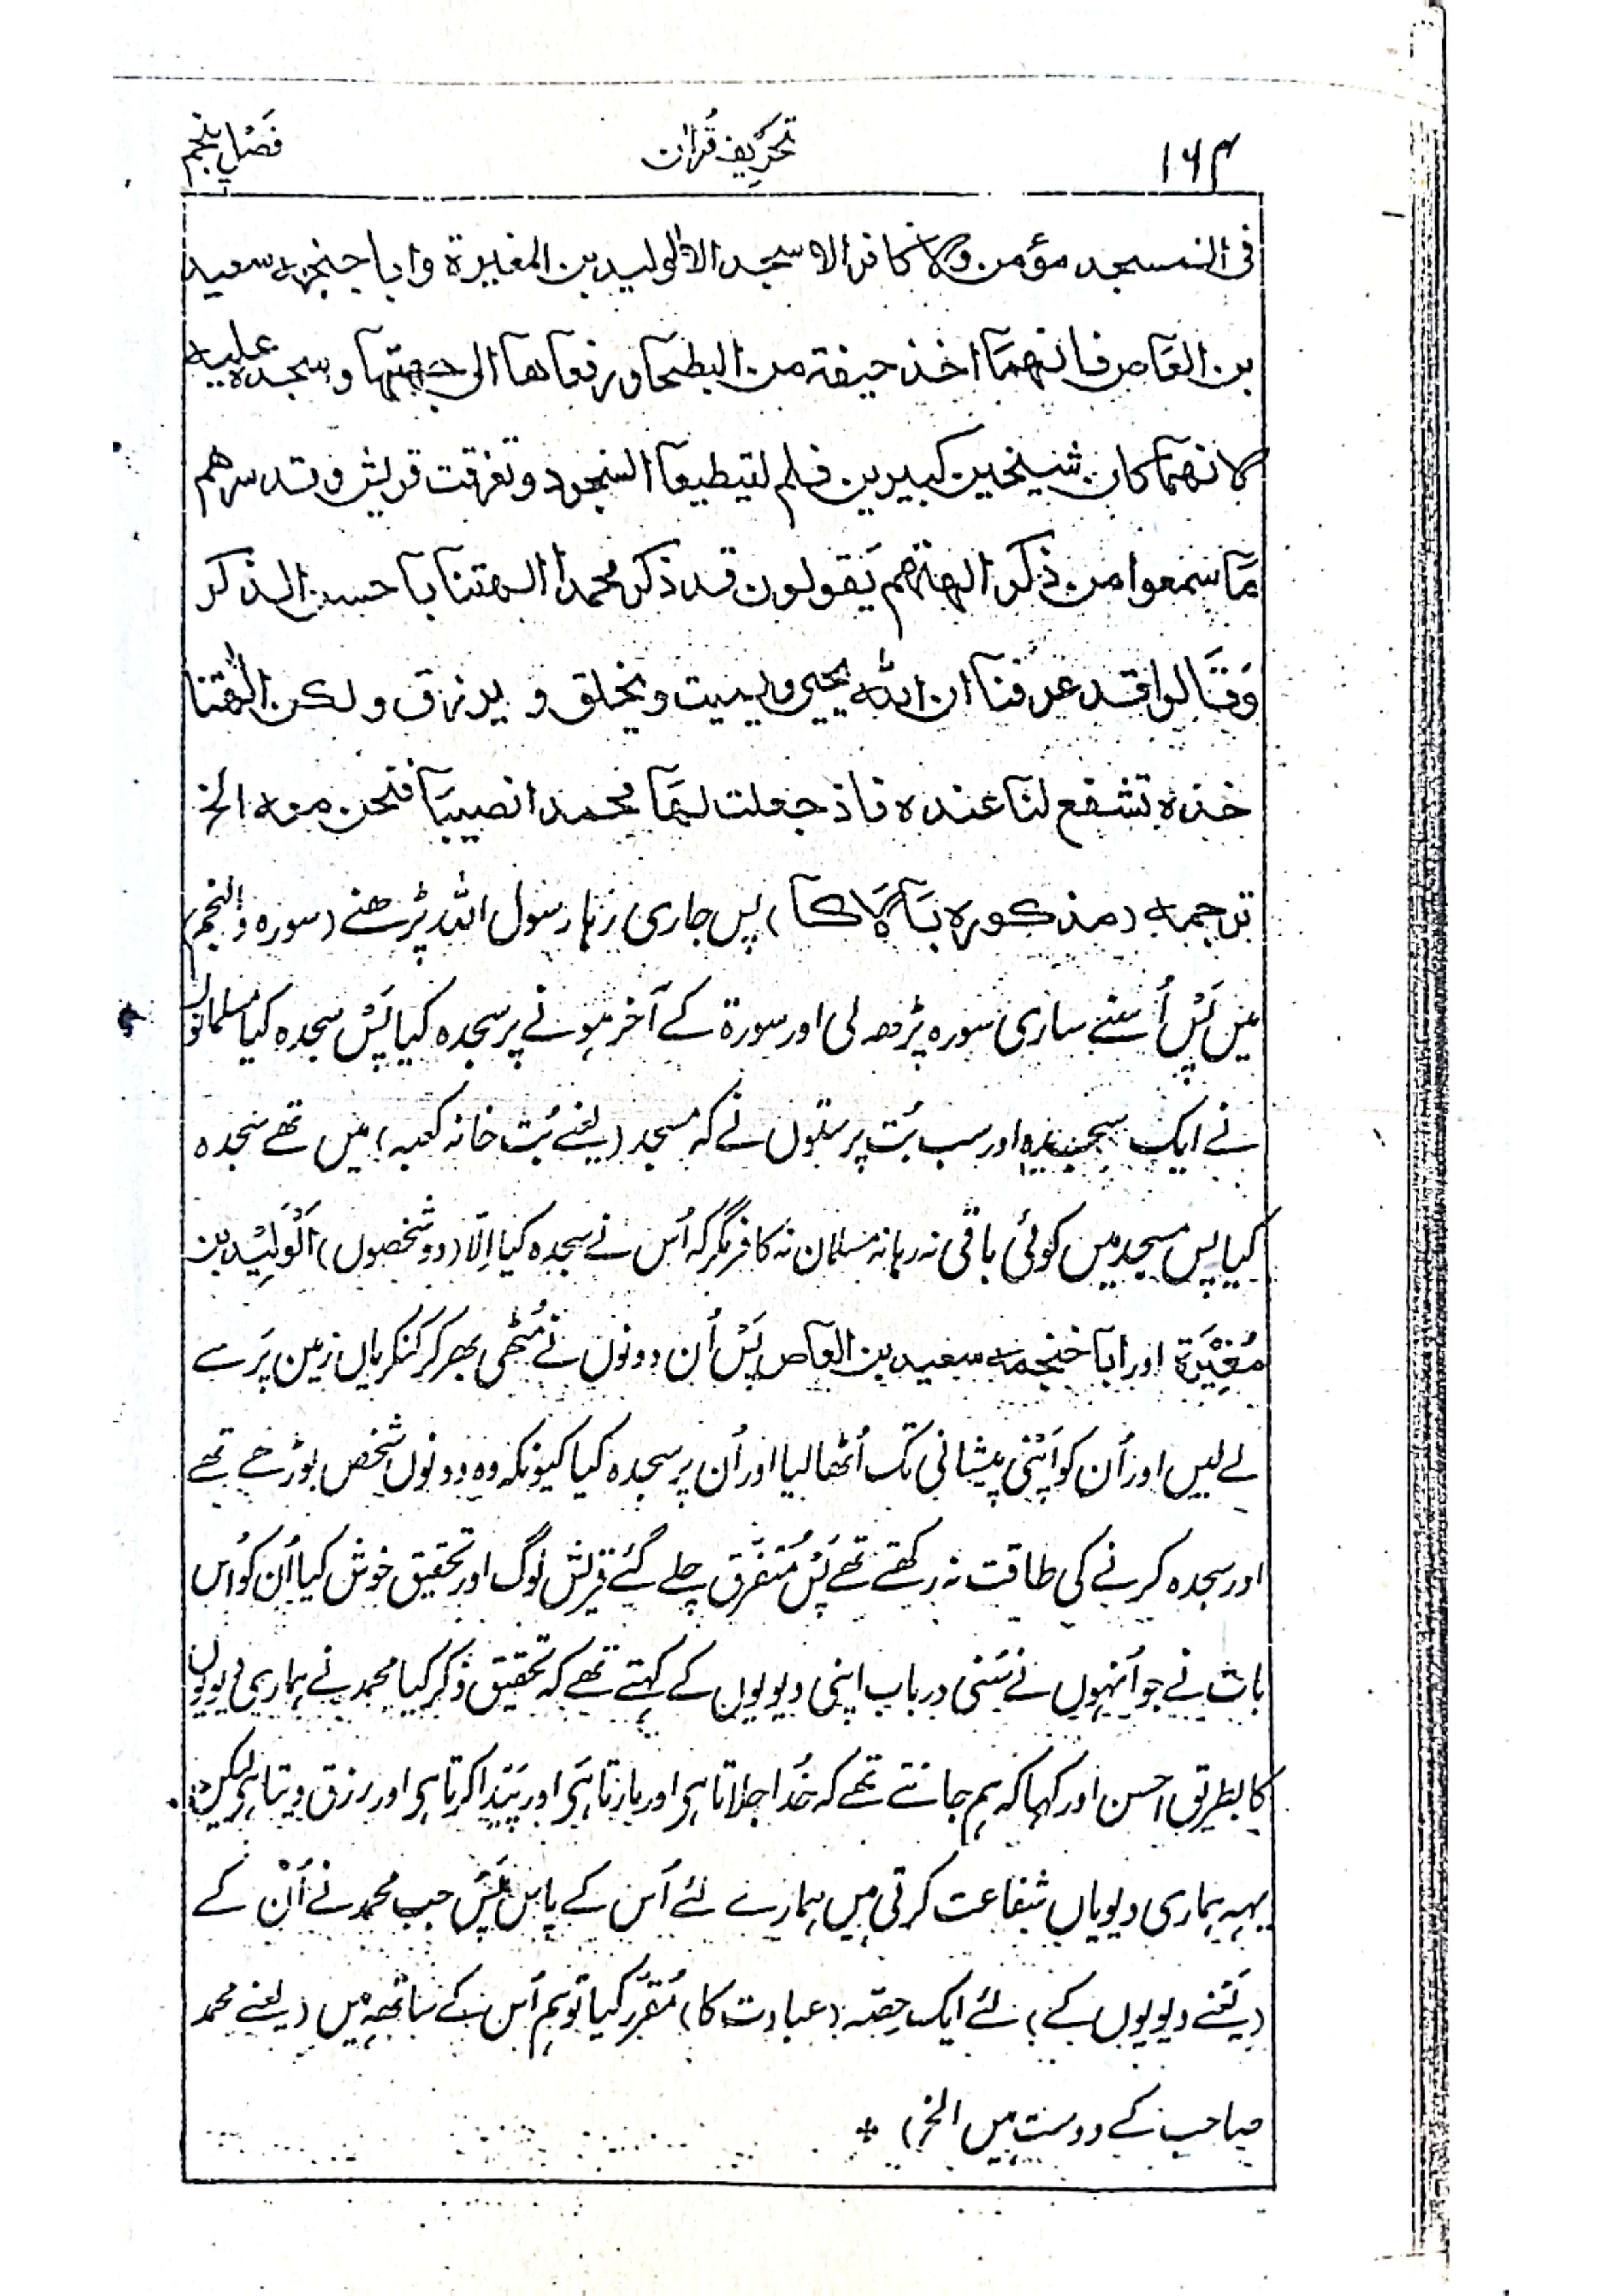 ۱۶۴ تحریف قرآن فصل پنجم
فی المسجد مؤمن ولا کافر الا سجد الا الولید بن المغیرة وابا جنجہ سعید
بن العاص فانهما اخذ حیفة من البطحا ورفعاها الی جبهتها وسجد علیه
لانهما کان شیخین کبیرین فلم یستطیعا السجود وتفرقت قریش وقد سرهم
ما سمعوا من ذکر الهتهم یقولون قد ذکر محمدا الهتنا باحسن الذکر
وقالوا قد عرفنا ان الله یحیی ویمیت ویخلق ویرزق ولکن الهتنا
هذه تشفع لنا عنده فاذ جعلت لها محمدا نصیبا فنحن معه الخ
ترجمہ (مذکورہ بالا کا) پس جاری رہا رسول اللہ پڑھنے (سورہ والنجم)
میں پس اُسنے ساری سورہ پڑھ لی اور سورة کے آخر ہونے پر سجدہ کیا پس سجدہ کیا مسلمانوں
نے ایک سجدہ اور سب بُت پرستوں نے کہ مسجد (یعنے بُت خانہ کعبہ) میں تھے سجدہ
کیا پس مسجد میں کوئی باقی نہ رہا نہ مسلمان نہ کافر مگر کہ اُس نے سجدہ کیا اِلّا (دو شخصوں) اَلْوَلِیْد بن
مُغِیْرَة اور ابا خنجمہ سعید بن العاص پس اُن دونوں نے مُٹھی بھر کر کنکریاں زمین پر سے
لے لیں اور اُن کو اپنی پیشانی تک اُٹھا لیا اور اُن پر سجدہ کیا کیونکہ وہ دونوں شخص بوڑھے تھے
اور سجدہ کرنے کی طاقت نہ رکھتے تھے پس مُتفَرّق چلے گئے قریش لوگ اور تحقیق خوش کیا اُن کو اُس
بات نے جو اُنہوں نے سُنی درباب اپنی دیویوں کے کہتے تھے کہ تحقیق ذکر کیا محمد نے ہماری دیویوں
کا بطریق احسن اور کہا کہ ہم جانتے تھے کہ خُدا جلاتا ہی اور مارتا ہی اور پَیدا کرتا ہی اور رزق دیتا ہی لیکن
یہہ ہماری دیویاں شفاعت کرتی ہیں ہمارے لئے اُس کے پاس پس جب محمد نے اُن کے
(یعنے دیویوں کے) لئے ایک حِصّہ (عبادت کا) مُقرّر کیا تو ہم اُس کے ساتھہ ہیں (یعنے محمد
صاحب کے دوست ہیں الخ)